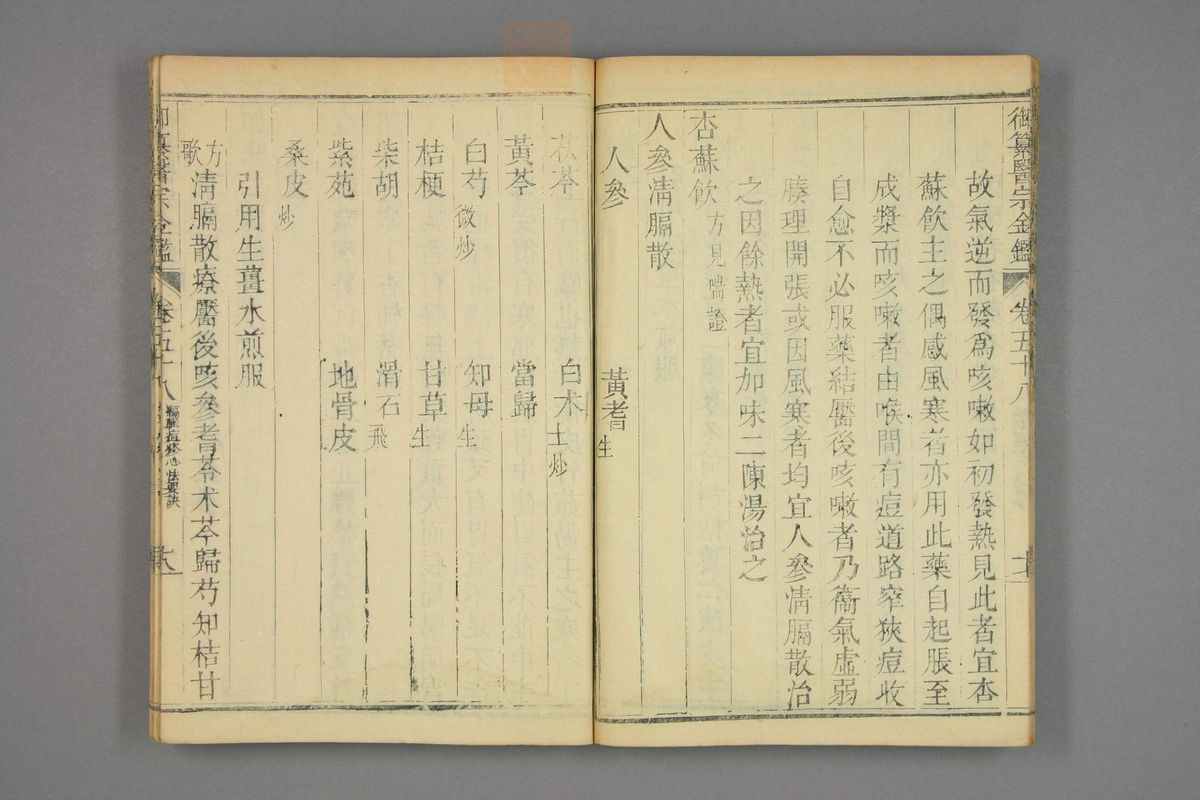 御纂醫宗金鑑 卷五十八
故氣逆而發爲咳嗽如初發熱見此者宜杏
蘇飲主之偶感風寒者亦用此藥自起脹至
成漿而咳嗽者由喉間有痘道路窄狹痘收
自愈不必服藥結靨後咳嗽者乃衞氣虛弱
腠理開張或因風寒者均宜人參清膈散治
之因餘熱者宜加味二陳湯治之
杏蘇飲方見喘證
人參清膈散
人參 黃耆生
茯苓 白术土炒
黃芩 當歸
白芍微炒 知母生
桔梗 甘草生
柴胡 滑石飛
紫苑 地骨皮
桑皮炒
引用生薑水煎服
方歌 清膈散療靨後咳參耆苓术芩歸芍知桔甘
御纂醫宗金鑑 卷五十八 十八